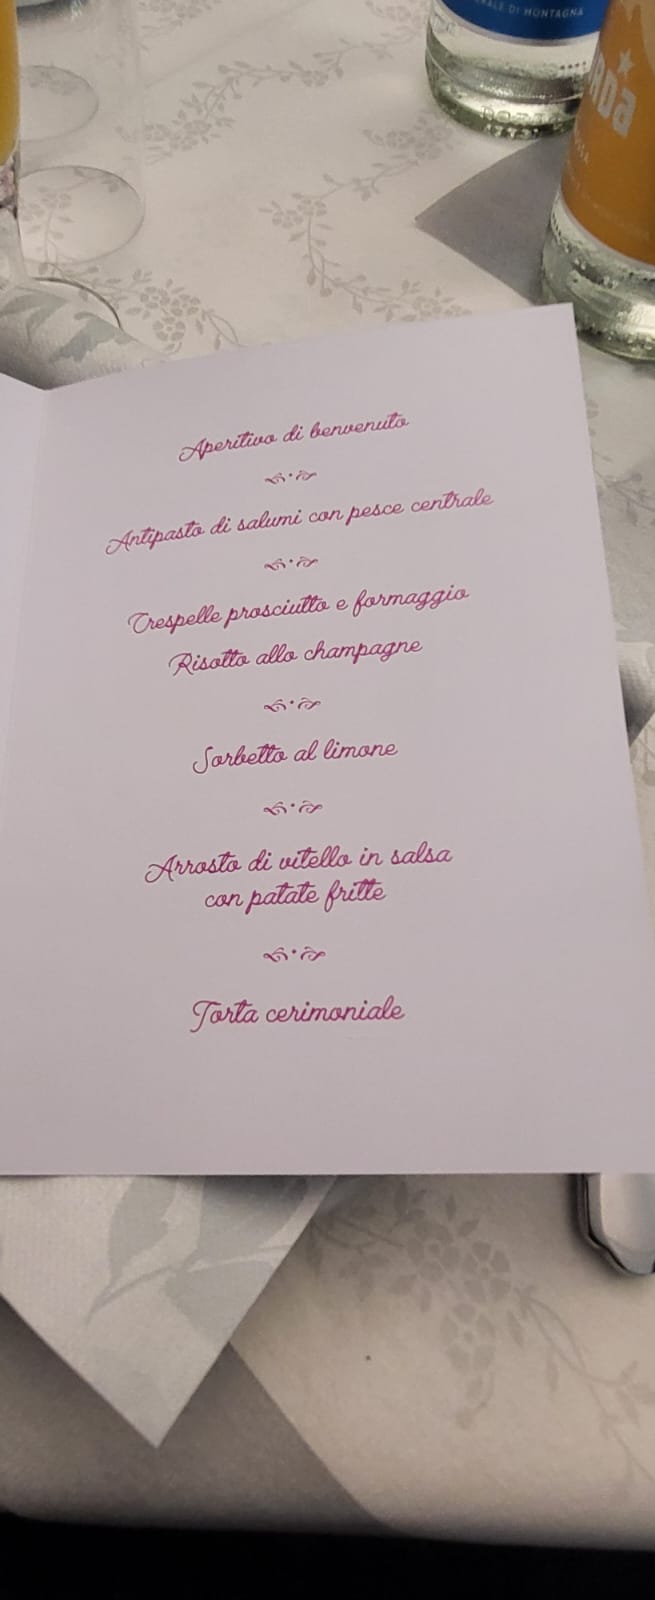 ALE DI MONTAGNA
Aperitivo di benvenuto
Antipasto di salumi con pesce centrale
Crespelle prosciutto e formaggio
Risotto allo champagne
Sorbetto al limone
Arrosto di vitello in salsa
con patate fritte
Torta cerimoniale